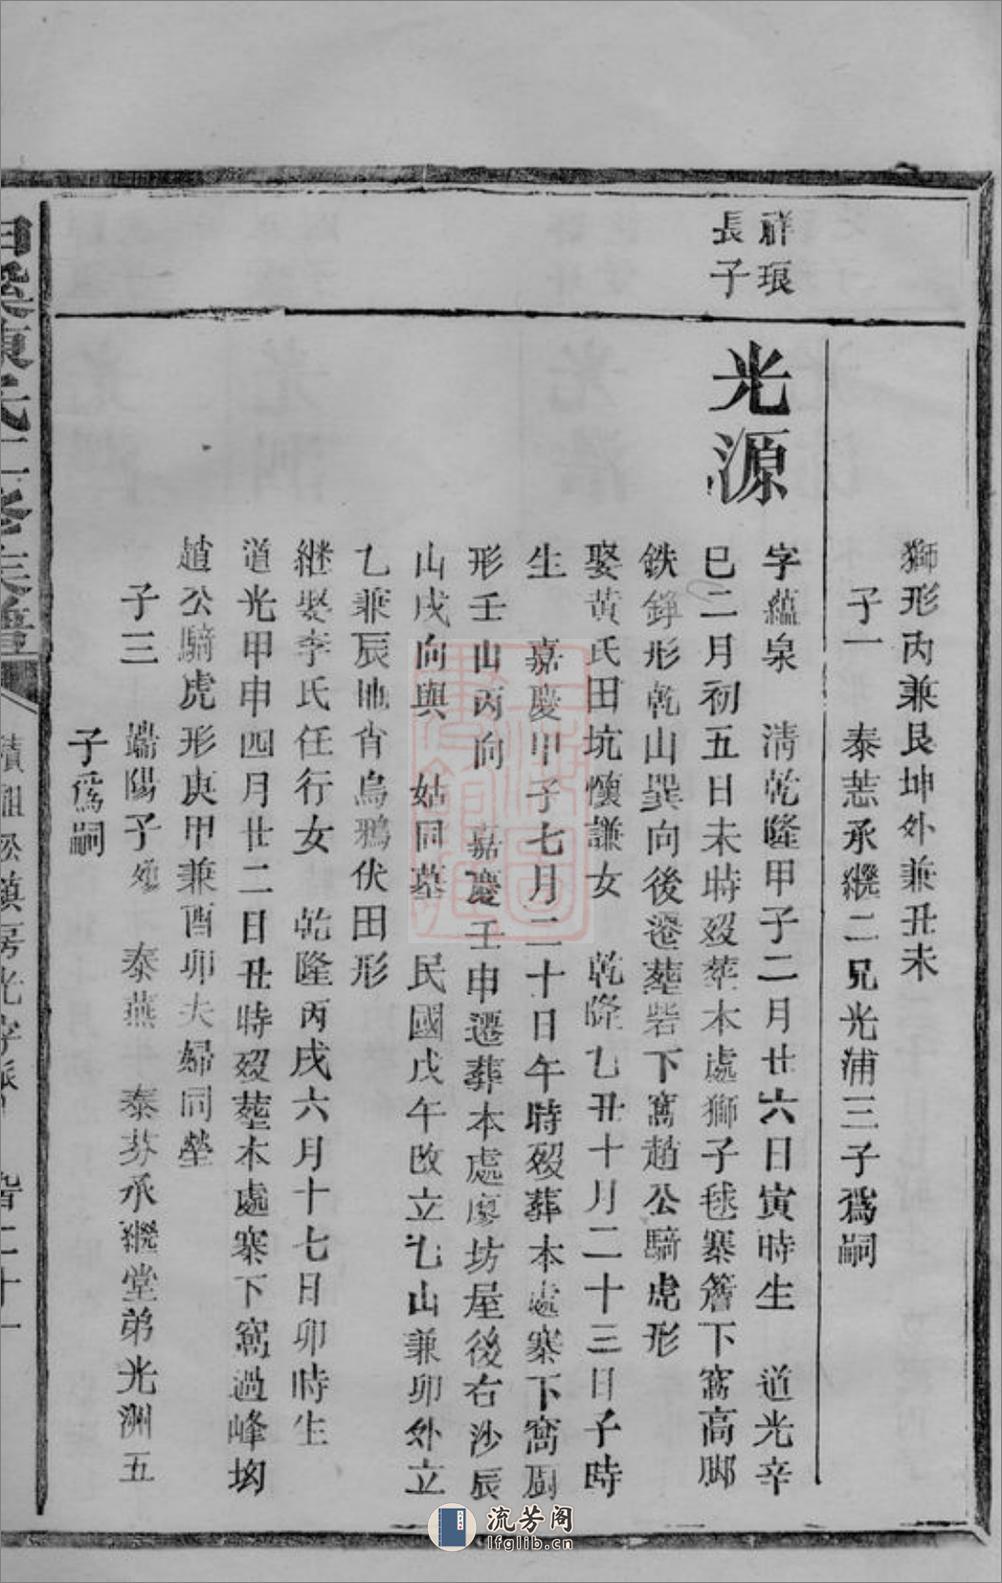 獅形丙兼艮坤外兼丑未
子一　泰惹承繼二兄光浦三子為嗣
祥琅
長子
光源
字蘊泉　清乾隆甲子二月廿六日寅時生　道光辛
巳二月初五日未時歿葬本處獅子毬寨簷下窩高脚
鉄錚形乾山巽向後遷葬砦下窩趙公騎虎形
娶黄氏田坑懷謙女　乾隆乙丑十月二十三日子時
生　嘉慶甲子七月二十日午時歿葬本處寨下窩
形壬山丙向　嘉慶壬申遷葬本處廖坊屋後右沙辰
山戌向與　姑同墓　民國戊午改立乙山兼卯外立
乙兼辰地肖烏鴉伏田形
継娶李氏任行女　乾隆丙戌六月十七日卯時生
道光甲申四月廿二日丑時歿塟本處寨下窩過峰坳
趙公騎虎形庚甲兼酉卯夫婦同塋
子三　端陽子　泰燕　泰芬承繼堂弟光洲五
子為嗣
陳氏二修族譜
房光字派
二十一
流芳阁
lfglib.cn